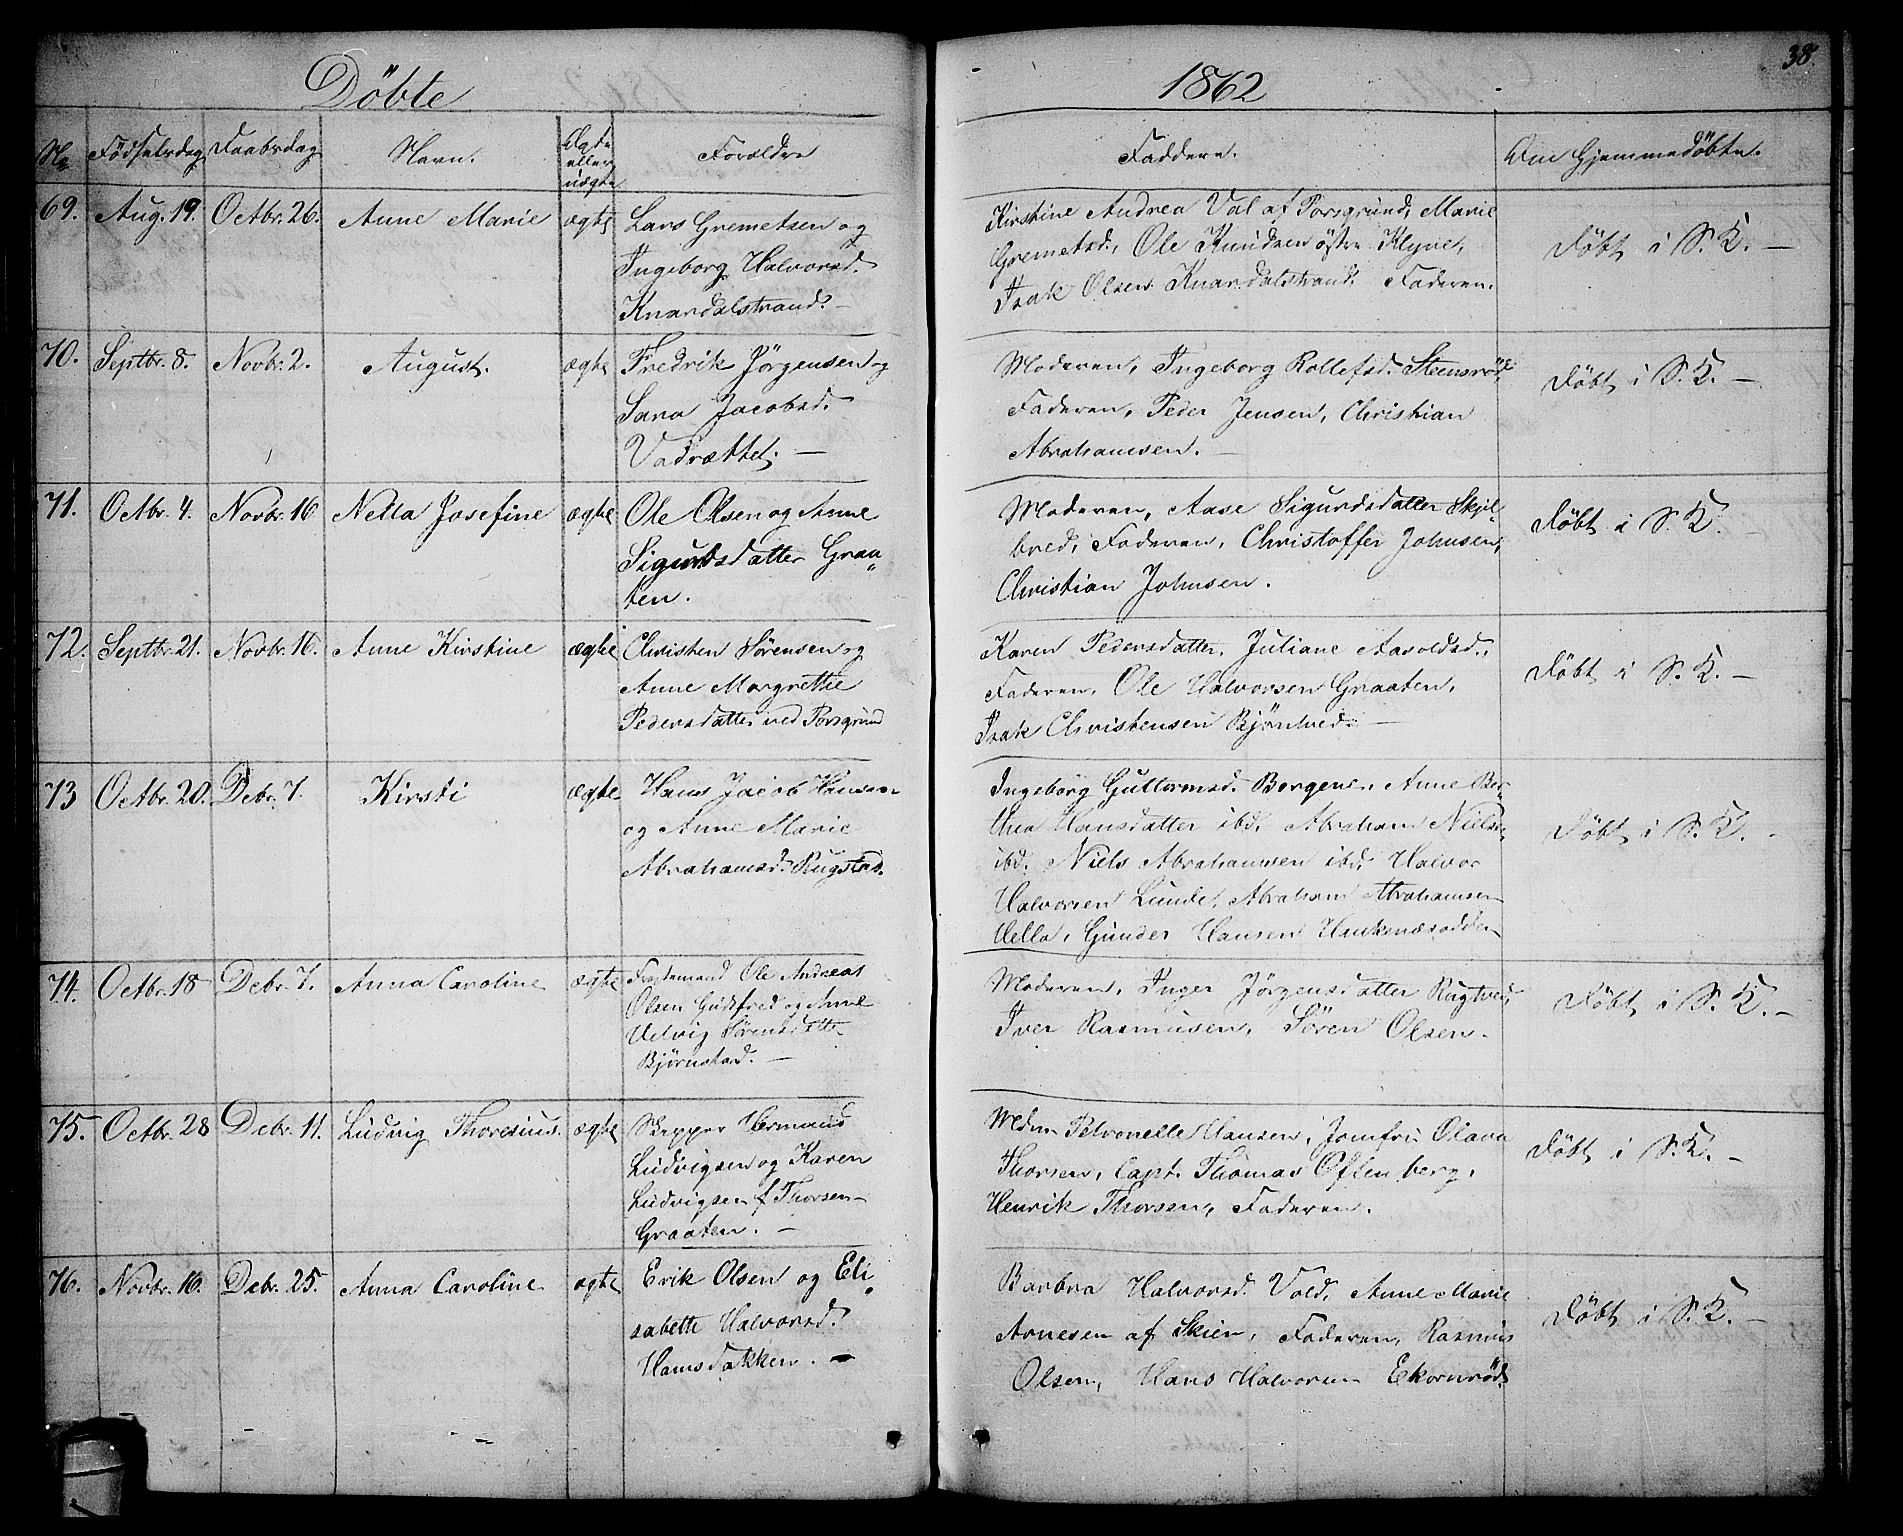 Döbte
1862
38.
No
Födselsdag
Daabsdag
Navn.
Ægte
eller
uægte
Forældre
Faddere.
Om Hjemmedöbte.
69.
Aug. 19.
Octbr. 26.
Anne Marie
ægte
Lars Gremetsen og
Ingeborg Halvorsd.
Knardalstrand. —
Kirstine Andrea Val af Porsgrund, Marie
Gremetsd., Ole Knudsen östre Klyve,
Isak Olsen Knardalstrand. Faderen.
Döbt i S. K. —
70.
Septbr. 8.
Novbr. 2.
August.
ægte
Fredrik Jörgensen og
Sara Jacobsd.
Vadrættet. —
Moderen, Ingeborg Rollefsd. Steensrød,
Faderen, Peder Jensen, Christian
Abrahamsen. —
Döbt i S. K. —
71.
Octbr. 4.
Novbr. 16
Nella Josefine
ægte
Ole Olsen og Anne
Sigurdsdatter Graa„
ten.
Moderen, Aase Sigurdsdatter Skjel„
bred, Faderen, Christoffer Johnsen,
Christian Johnsen.
Döbt i S. K. —
72.
Septbr. 21.
Novbr. 16.
Anne Kirstine
ægte
Christen Sörensen og
Anne Margrethe
Pedersdatter ved Porsgrund
Karen Pedersdatter, Juliane Aasoldsd.,
Faderen, Ole Halvorsen Graaten,
Isak Christensen Bjørntvedt. —
Döbt i S. K. —
73
Octbr. 20.
Debr. 7.
Kirsti
ægte
Hans Jacob Hansen
og Anne Marie
Abrahamsd. Rugstad.
Ingeborg Guttormsd. Borgene, Anne Ber„
thea Hansdatter ibd. Abraham Niels.
ibd. Niels Abrahamsen ibd. Halvor
Halvorsen Lunde, Abraham Abrahamsen
Hella, Gunder Hansen Haukenæsodden
Döbt i S. K. —
74.
Octbr. 18
Debr. 7.
Anna Caroline
ægte
Fragtemand Ole Andreas
Olsen Gudsfred og Anne
Helvig Sörensdatter
Bjørnstad. —
Moderen, Inger Jörgensdatter Rugtved,
Iver Rasmusen, Sören Olsen.
Döbt i S. K. —
75.
Octbr. 28
Debr. 11.
Ludvig Thoresius.
ægte
Skipper Hermand
Ludvigsen og Karen
Ludvigsen f. Thorsen
Graaten. —
Mdm Petronelle Hansen, Jomfru Olava
Thorsen, Capt. Thomas Oftenberg,
Henrik Thorsen, Faderen.
Döbt i S. K. —
76.
Novbr. 16.
Debr. 25.
Anna Caroline
ægte
Erik Olsen og Eli„
sabeth Halvorsd.
Hansdakken. —
Barbra Halvorsd. Vold, Anne Marie
Arnesen af Skien, Faderen, Rasmus
Olsen, Hans Halvorsen Ekornrød.
Döbt i S. K. —